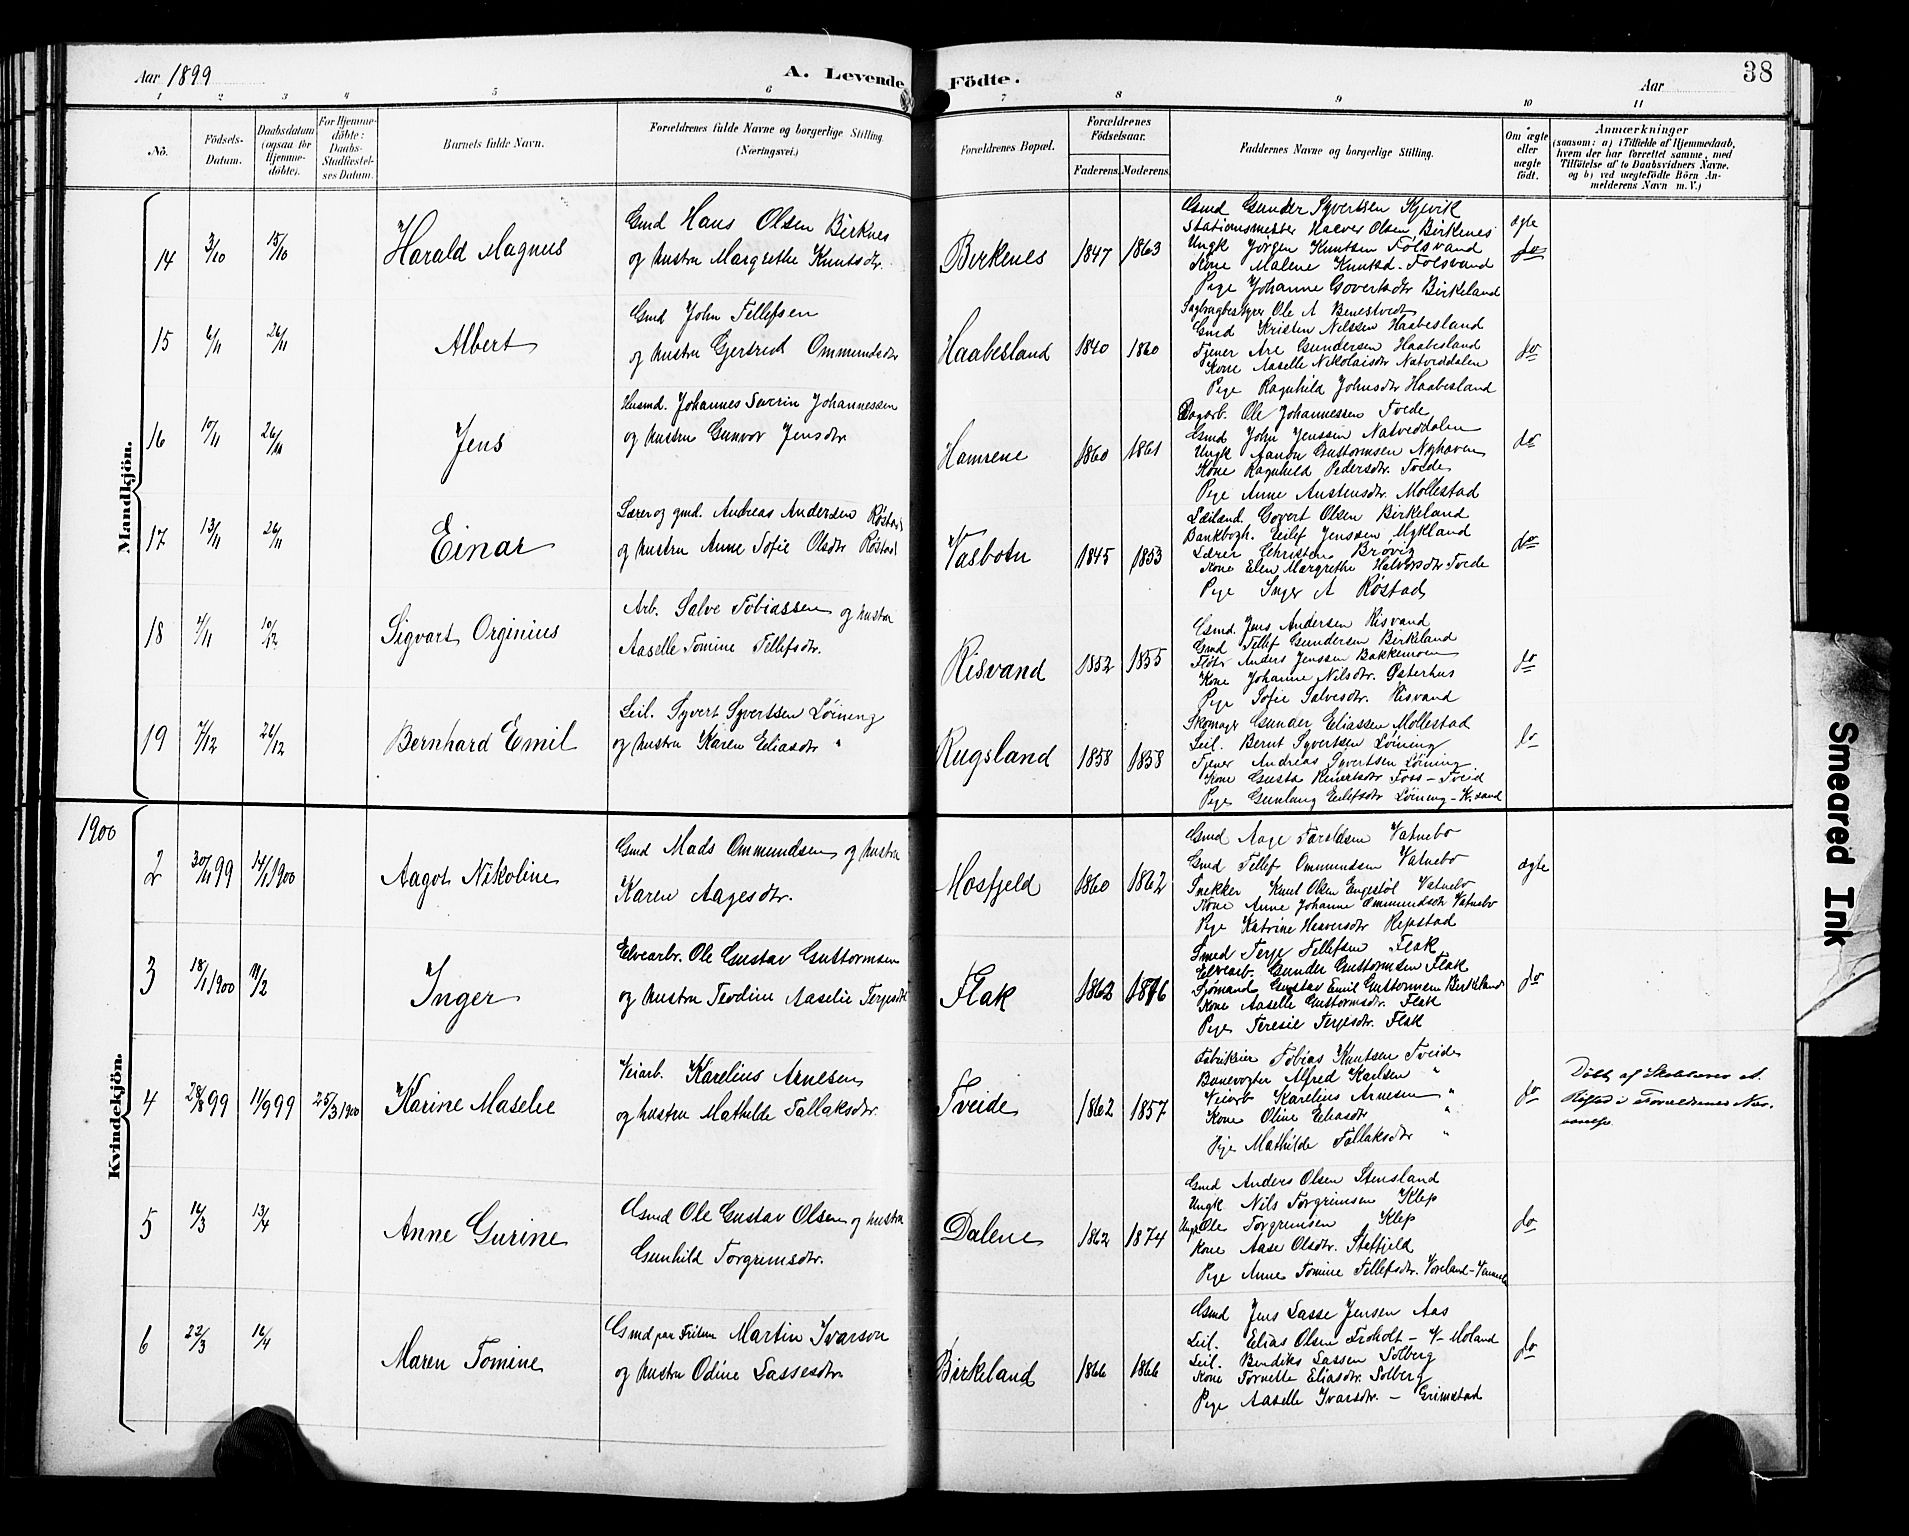 Aar 1899
A. Levende Födte.
Aar
38
1 2 3 4 5 6 7 8 9 10 11
Nö.
Födsels-Datum.
Daabsdatum (ogsaa for Hjemme-döbte).
For Hjemme-döbte: Daabs-Stadfæstel-ses Datum.
Barnets fulde Navn.
Forældrenes fulde Navne og borgerlige Stilling. (Næringsvei.)
Forældrenes Bopæl.
Forældrenes Födselsaar.
Faderens. Moderens.
Faddernes Navne og borgerlige Stilling.
Om ægte eller uægte födt.
Anmærkninger
(saasom: a) i Tilfælde af Hjemmedaab,
hvem der har forrettet samme, med
Tilföielse af to Daabsvidners Navne.
og b) ved uægtefödte Börn An-
melderens Navn m. V.)
Mandkjön.
14 3/10 15/10 Harald Magnus
Gmd Hans Olsen Birknes
og hustru Margrethe Knutsdtr.
Birkenes 1847 1863
Gmd Gunder Syvertsen Kjevik
Stationsmester Halvor Olsen, Birkenes
Ungk Jørgen Knutsen Følsvand
Kone Malene Knutsd. Følsvand
Pige Johanne Govertsdtr Birkeland
ægte
do
15 6/11 26/11 Albert
Gmd John Tellefsen
og hustru Gjertrud Ommundsdtr
Haabesland 1840 1860
Sagbrugbestyrer Ole A Benestvedt
Gmd Kristen Nilssen Haabesland
Tjener Are Gundersen Haabesland
Kone Aaselle Nikolaisdtr Natveddalen
Pige Ragnhild Johnsdtr Haabesland
do
16 10/11 26/11 Jens
Husmd. Johannes Severin Johannessen
og hustru Gunvor Jensdtr.
Hamrene 1860 1861
Dagarb. Ole Johannessen Tvede
Gmd John Jenssen Natveddalen
Ungk Aanon Guttormsen Nyhaven
Kone Ragnhild Pedersdtr. Tvede
Pige Anne Austensdtr. Mollestad
do
17 13/11 26/11 Einar
Lærer og gmd. Andreas Andersen Røstad
og hustru Anne Sofie Olsdtr Røstad
Vasbotn 1845 1853
Leiland. Govert Olsen Birkeland
Bankbogh. Eilef Jenssen Mykland
Lærer Christen Brøvig
Kone Elen Margrethe Halvorsdtr Tvede
Pige Inger A Røstad
do
18 4/11 10/12 Sigvart Orginius
Arb. Salve Tobiassen og hustru
Aaselle Tomine Tellefsdtr.
Risvand 1852 1855
Gmd. Jens Andersen Risvand
Gmd Tellef Gundersen Birkeland
Fløtr Anders Jenssen Bakkemoen
Kone Johanne Nilsdtr. Østerhus
Pige Sofie Salvesdtr. Risvand
do
19 7/12 26/12 Bernhard Emil
Leil. Syvert Syvertsen Løining
og hustru Karen Eliasdtr "
Rugsland 1858 1858
Skomager Gunder Eliassen Mollestad
Leil. Bernt Syvertsen Løining
Tjener Andreas Syvertsen Løining
Kone Gusta Reiersdtr Foss - Tveid
Pige Gunlaug Eilefsdtr Løining - K.sand
do
1900
Kvindekjön.
2 30/11 99 14/1 1900 Aagot Nikoline
Gmd Mads Ommundsen og hustru
Karen Aagesdtr.
Mosfjeld 1860 1862
Gmd Aage Taraldsen Vatnebo
Gmd Tellef Ommundsen Vatnebo
Snekker Knut Olsen Engestøl Vatnebo
Kone Anne Johanne Ommundsdtr Vatnebo
Pige Katrine Heaversdtr Repstad
ægte
3 18/1 1900 11/2 Inger
Elvearbr. Ole Gustav Guttormsen
og hustru Teodine Aaselie Terjesdtr
Flak 1862 1876
Smed Terje Tellefsen Flak
Elvearb. Gunder Guttormsen Flak
Sjømand Gustav Emil Guttormsen Birkeland
Kone Aaselle Guttormsdtr. Flak
Pige Teresie Terjesdtr. Flak
do
4 28/8 99 11/9 99 25/3 1900 Karine Maselie
Veiarb. Karelius Arnesen
og hustru Mathilde Tallaksdtr.
Tveide 1862 1857
Fabrikeier Tobias Knutsen Tveide
Banevogter Alfred Karlsen "
Veiarb Karelius Arnesen "
Kone Oline Eliasdtr "
Pige Mathilde Tallaksdtr "
do
Døbt af Skolelærer A.
Røstad i Forældrenes Nær-
værelse.
5 16/3 13/4 Anne Gurine
Gmd Ole Gustav Olsen og hustru
Gunhild Torgrimsdtr.
Dalene 1862 1874
Gmd Anders Olsen Stensland
Ungk Nils Torgrimsen Klep
Ungk Ole Torgrimsen Klep
Kone Aase Olsdtr. Støtfjeld
Pige Anne Tomine Tellefsdtr. Voreland - Vennesla
do
6 22/3 16/4 Maren Tomine
Gmd paa Fritun Martin Ivarson
og hustru Odine Lassesdtr
Birkeland 1866 1866
Gmd Jens Lasse Jensen Aas
Leil. Elias Olsen Froholt - V-Moland
Leil. Bendiks Lassen Solberg
Kone Tornette Eliasdtr. Solberg
Pige Aaselle Ivarsdtr. - Grimstad
do
Smeared Ink